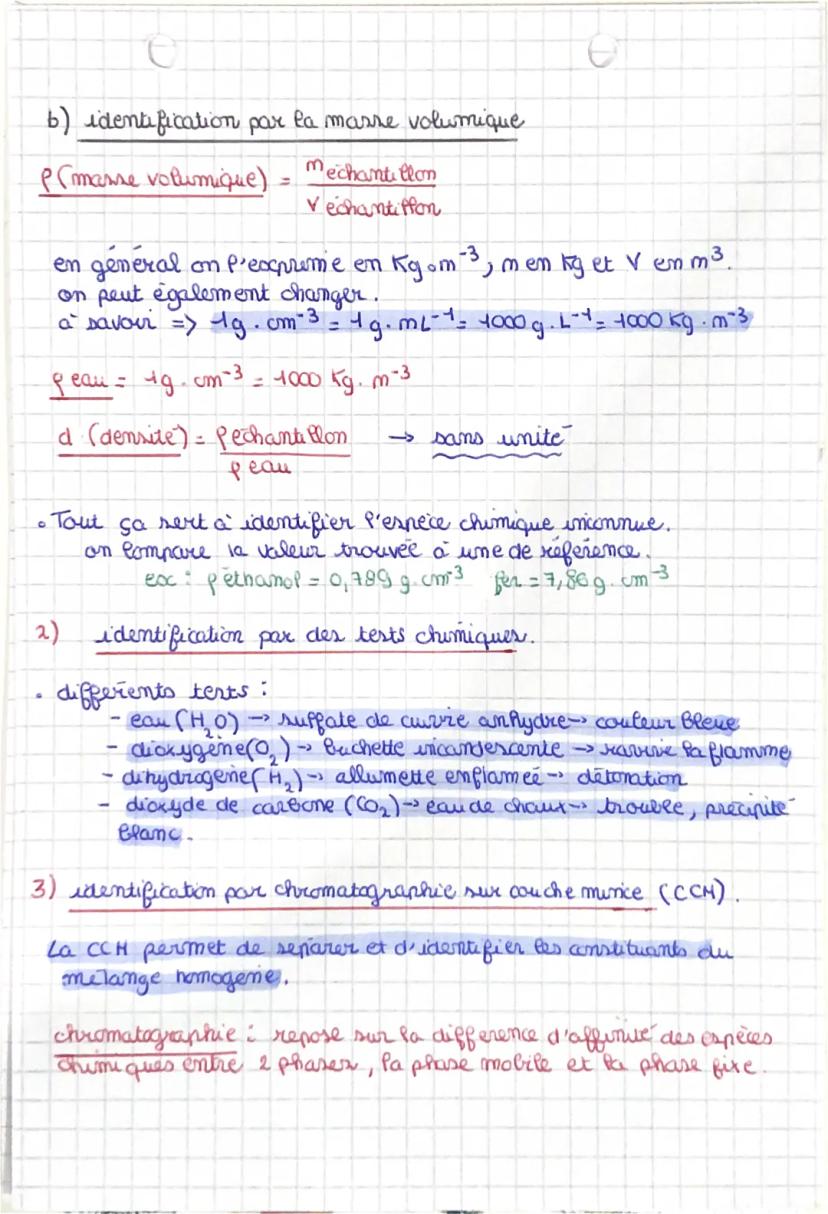 b) identification par la masse volumique
ρ (masse volumique) = m échantillon / V échantillon
en général on l'exprime en Kg.m⁻³, m en kg et V en m³.
on peut également changer.
à savoir => 1g.cm⁻³ = 1g.mL⁻¹ = 1000g.L⁻¹ = 1000 Kg.m⁻³
ρ eau = 1g.cm⁻³ = 1000 Kg.m⁻³
d (densité) = ρ échantillon / ρ eau → sans unité
• Tout ça sert à identifier l'espèce chimique inconnue.
on compare la valeur trouvée à une de référence.
ex : ρ éthanol = 0,789 g.cm⁻³ fer = 7,86 g.cm⁻³
2) identification par des tests chimiques.
• différents tests :
- eau (H₂O) → sulfate de cuivre anhydre → couleur bleue
- dioxygène (O₂) → buchette incandescente → ravive la flamme
- dihydrogène (H₂) → allumette enflameé → détonation
- dioxyde de carbone (CO₂) → eau de chaux → trouble, précipité
blanc.
3) identification par chromatographie sur couche mince (CCM).
La CCM permet de séparer et d'identifier les constituants du
mélange homogène.
chromatographie : repose sur la différence d'affinité des espèces
chimiques entre 2 phases, la phase mobile et la phase fixe.